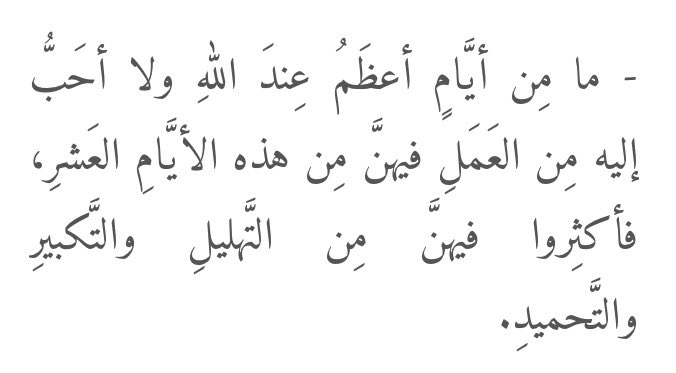 - ما مِن أيَّامٍ أعظَمُ عِندَ اللهِ ولا أحَبُّ
إليه مِن العَمَلِ فيهنَّ مِن هذه الأيَّامِ العَشرِ،
فأكثِروا فيهنَّ مِن التَّهليلِ والتَّكبيرِ
والتَّحميدِ.